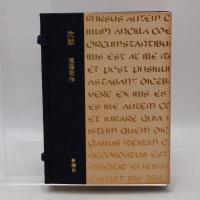 沈黙
遠藤周作
新潮社
RURSUS AUTEM C
ILLUM ANCILLA COE
CIRCUMSTANTIBUS
ILLIS EST AT ILLE IT
ET POST PUSILLUM
ASTABANT DICEB
VERE EX ILLIS ES
ILLIS EST ILLE AU
ET IURARE QUIA
ISTUM QUEM DIC
GALLUS ITERUM C
RECORDATUS EST
DIXERAT EI IESUS
TAMET BIS TER